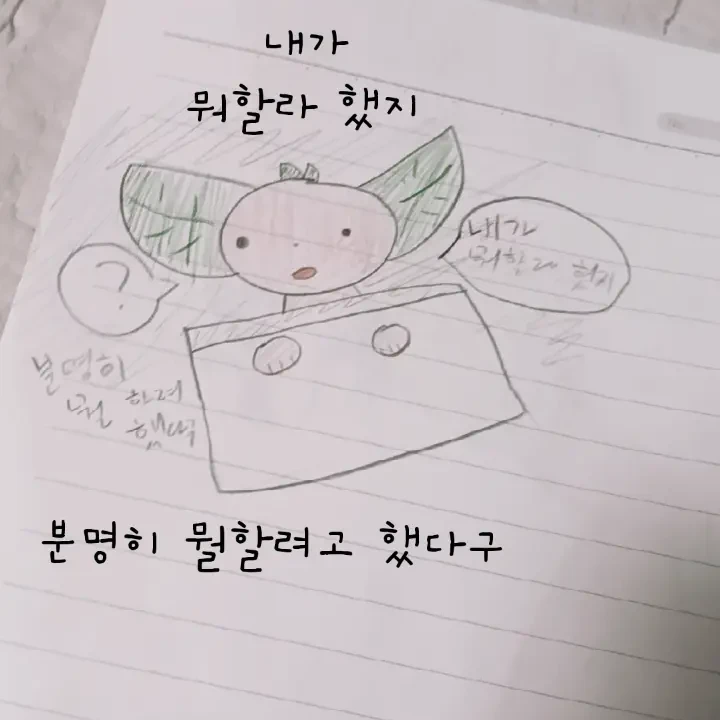 내가
뭐할라 했지
내가
뭐할라 했지
?
분명히
뭔 하려
했다구
분명히 뭘할려고 했다구